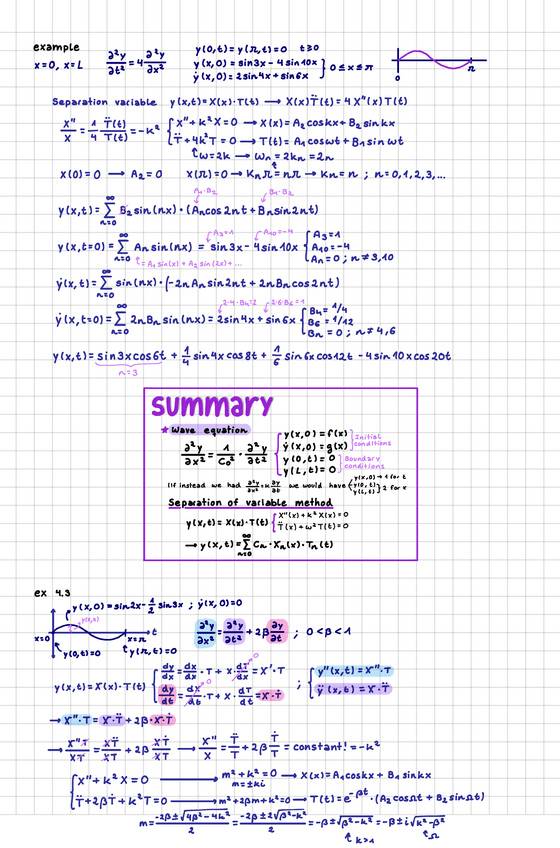 example
x=0, x=L
∂²y/∂t² = 4 ∂²y/∂x²
y(0,t) = y(π,t) = 0 t≥0
y(x,0) = sin3x - 4sin10x
ẏ(x,0) = 2sin4x + sin6x } 0≤x≤π
0 π
Separation variable y(x,t) = X(x)·T(t) → X(x)T̈(t) = 4X''(x)T(t)
X''/X = 1/4 T̈(t)/T(t) = -k² { X''+k²X=0 → X(x) = A₂coskx + B₂sinkx
T̈+4k²T=0 → T(t) = A₁cosωt + B₁sinωt
ω=2k → ωn = 2kn = 2n
x(0)=0 → A₂=0 x(π)=0 → Knπ = nπ → Kn = n ; n=0,1,2,3,...
An·B₂ Bn·B₂
y(x,t) = ∞∑n=0 B₂ sin(nx)·(An cos2nt + Bn sin2nt)
A₃=1 A₁₀=-4
y(x,t=0) = ∞∑n=0 An sin(nx) = sin3x - 4sin10x { A₃=1
A₁₀=-4
An=0 ; n≠3,10
= A₁sin(x) + A₂ sin(2x)+...
ẏ(x,t) = ∞∑n=0 sin(nx)·(-2nAn sin2nt + 2nBn cos2nt)
2·4·B₄=2 2·6·B₆=1
ẏ(x,t=0) = ∞∑n=0 2nBn sin(nx) = 2sin4x + sin6x { B₄ = 1/4
B₆ = 1/12
Bn = 0 ; n≠4,6
y(x,t) = sin3xcos6t + 1/4 sin4xcos8t + 1/6 sin6xcos12t - 4sin10xcos20t
n=3
summary
★ Wave equation
∂²y/∂x² = 1/C₀² · ∂²y/∂t² { y(x,0) = f(x)
ẏ(x,0) = g(x) ] Initial conditions
y(0,t) = 0
y(L,t) = 0 ] Boundary conditions
(If instead we had ∂²y/∂x² = ∂y/∂t we would have { y(x,0) → 1 for t
y(0,t)
y(L,t) } 2 for x
Separation of variable method
y(x,t) = X(x)·T(t) { X''(x)+k²X(x)=0
T̈(x)+ω²T(t)=0
→ y(x,t) = ∞∑n=0 Cn·Xn(x)·Tn(t)
ex 4.3
y(x,0) = sin2x - 1/2 sin3x ; ẏ(x,0)=0
y(x,t)
x=0 x=π t
y(0,t)=0 y(π,t)=0
∂²y/∂x² = ∂²y/∂t² + 2β ∂y/∂t ; 0<β<1
y(x,t) = X(x)·T(t) { dy/dx = dX/dx·T + X·dT/dx = X'·T
0
dy/dt = dX/dt·T + X·dT/dt = X·Ṫ
0
; { y''(x,t) = X''·T
ÿ(x,t) = X·T̈
→ X''·T = X·T̈ + 2β·X·Ṫ
→ X''T/XT = XT̈/XT + 2β XṪ/XT → X''/X = T̈/T + 2β Ṫ/T = constant! = -k²
{ X''+k²X=0 → m²+k²=0 → X(x) = A₁coskx + B₁sinkx
m=±ki
T̈+2βṪ+k²T=0 → m²+2βm+k²=0 → T(t) = e^-βt·(A₂cosΩt + B₂sinΩt)
m = -2β±√4β²-4k²/2 = -2β±2√β²-k²/2 = -β±√β²-k² = -β±i√k²-β²
k>1 Ω